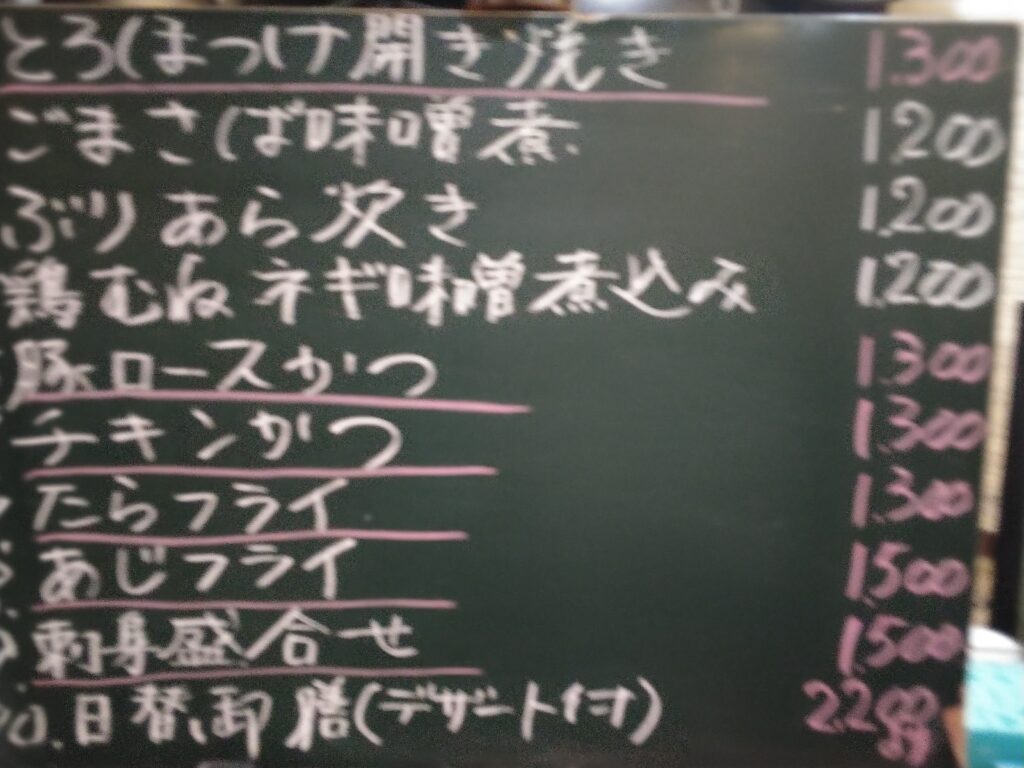 とろほっけ開き焼き 1.300
ごまさば味噌煮 1.200
ぶりあら炊き 1.200
鶏むねネギ味噌煮込み 1.200
豚ロースかつ 1.300
チキンかつ 1.300
たらフライ 1.300
あじフライ 1.500
刺身盛合せ 1.500
日替御膳(デザート付) 2.200